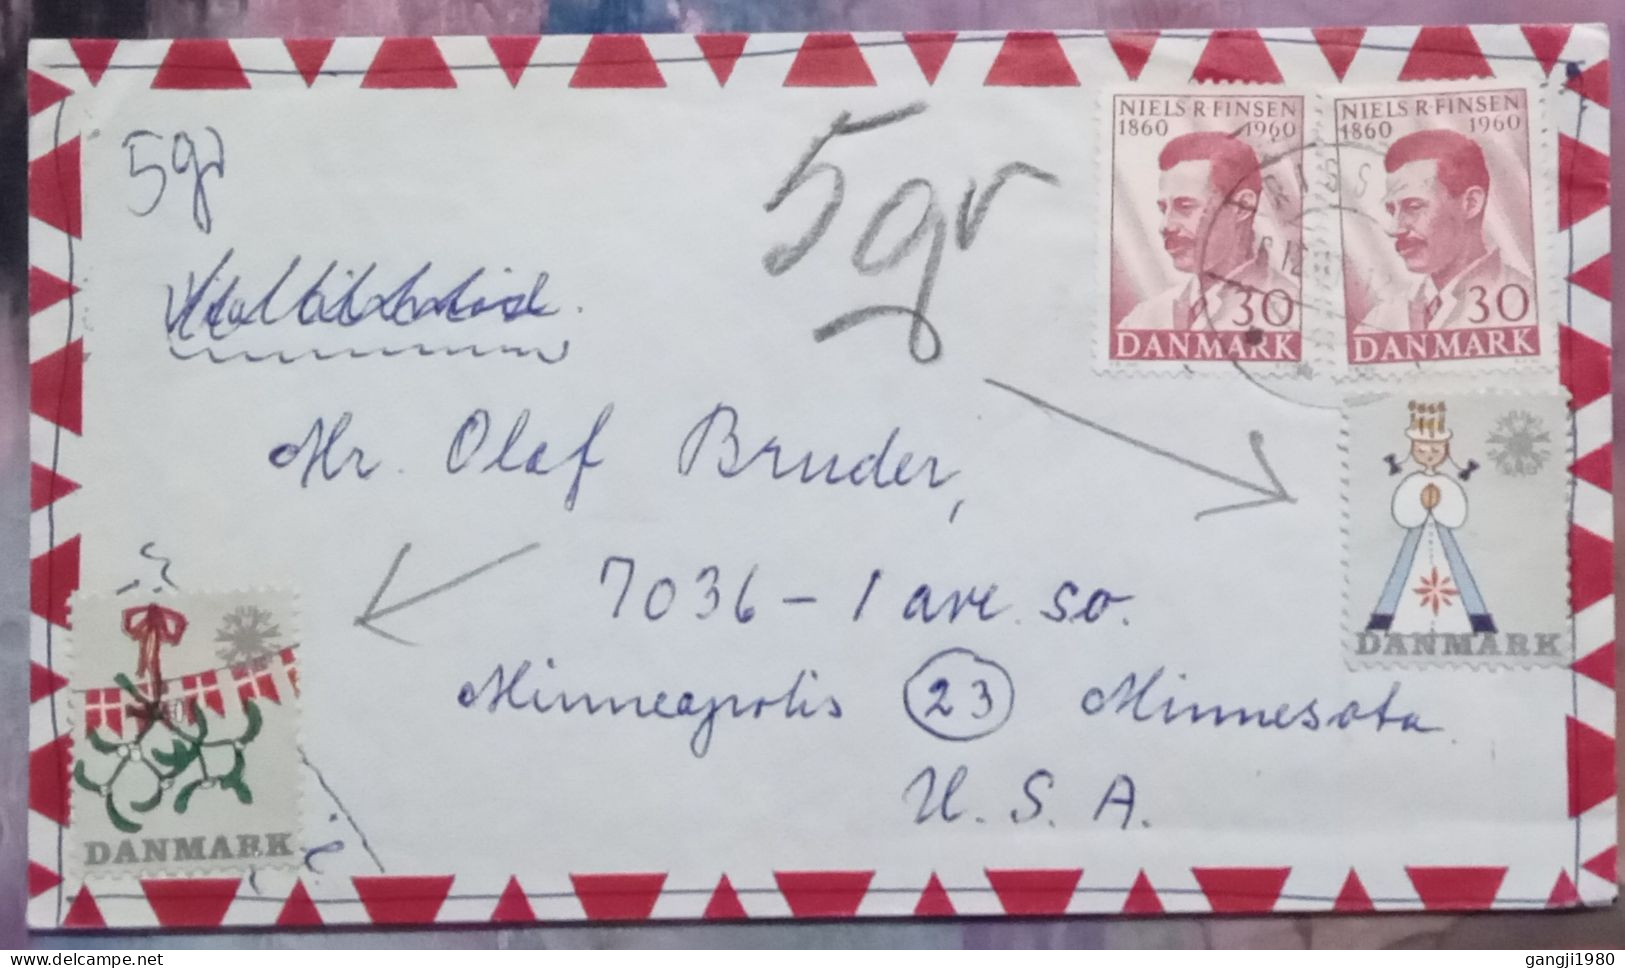 5gr
5gr
NIELS R·FINSEN
1860 1960
30
DANMARK
NIELS R·FINSEN
1860 1960
30
DANMARK
Mr. Olaf Bruder,
7036 – 1 ave. so.
Minneapolis 23 Minnesota
U. S. A.
DANMARK
DANMARK
www.delcampe.net
gangji1980